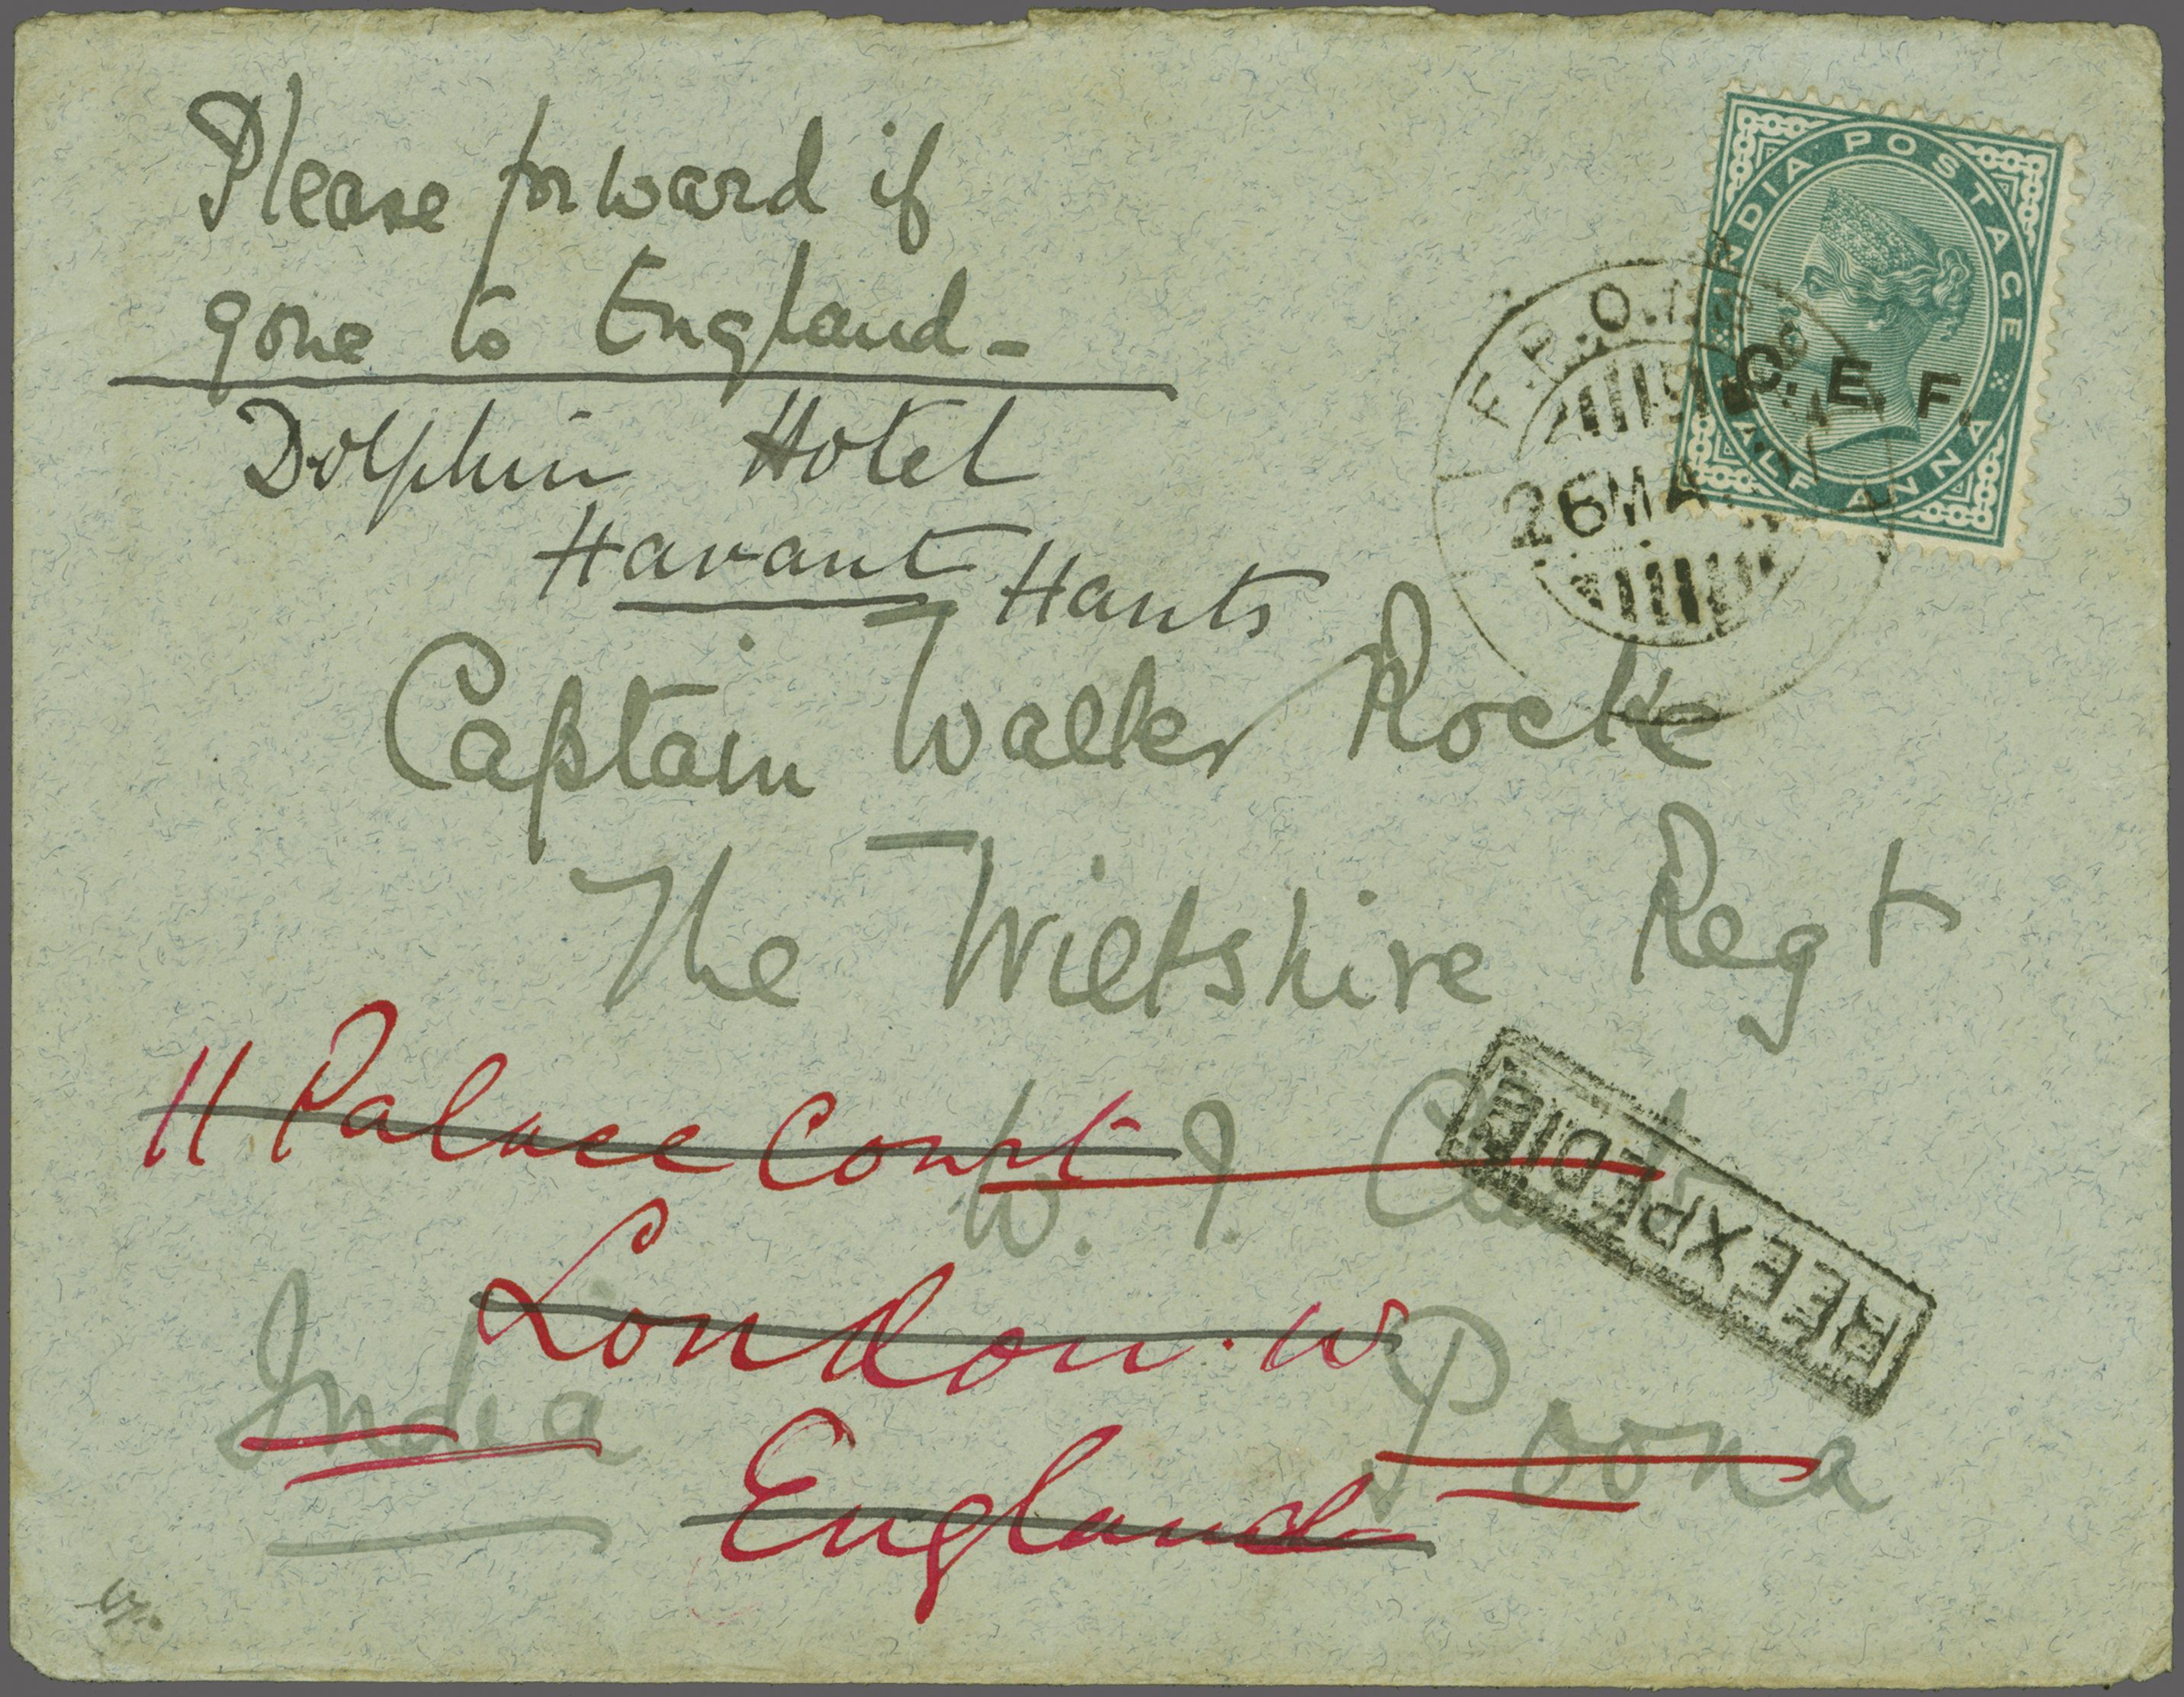 Please forward if
gone to England-
Dolphin Hotel
Havant Hants
INDIA POSTAGE
C. E. F.
HALF ANNA
F.P.O.
26 MA
Captain Walter Rocke
The Wiltshire Regt
11 Palace Court
W. I.
REEXPEDIE
London. W
India
Poona
England